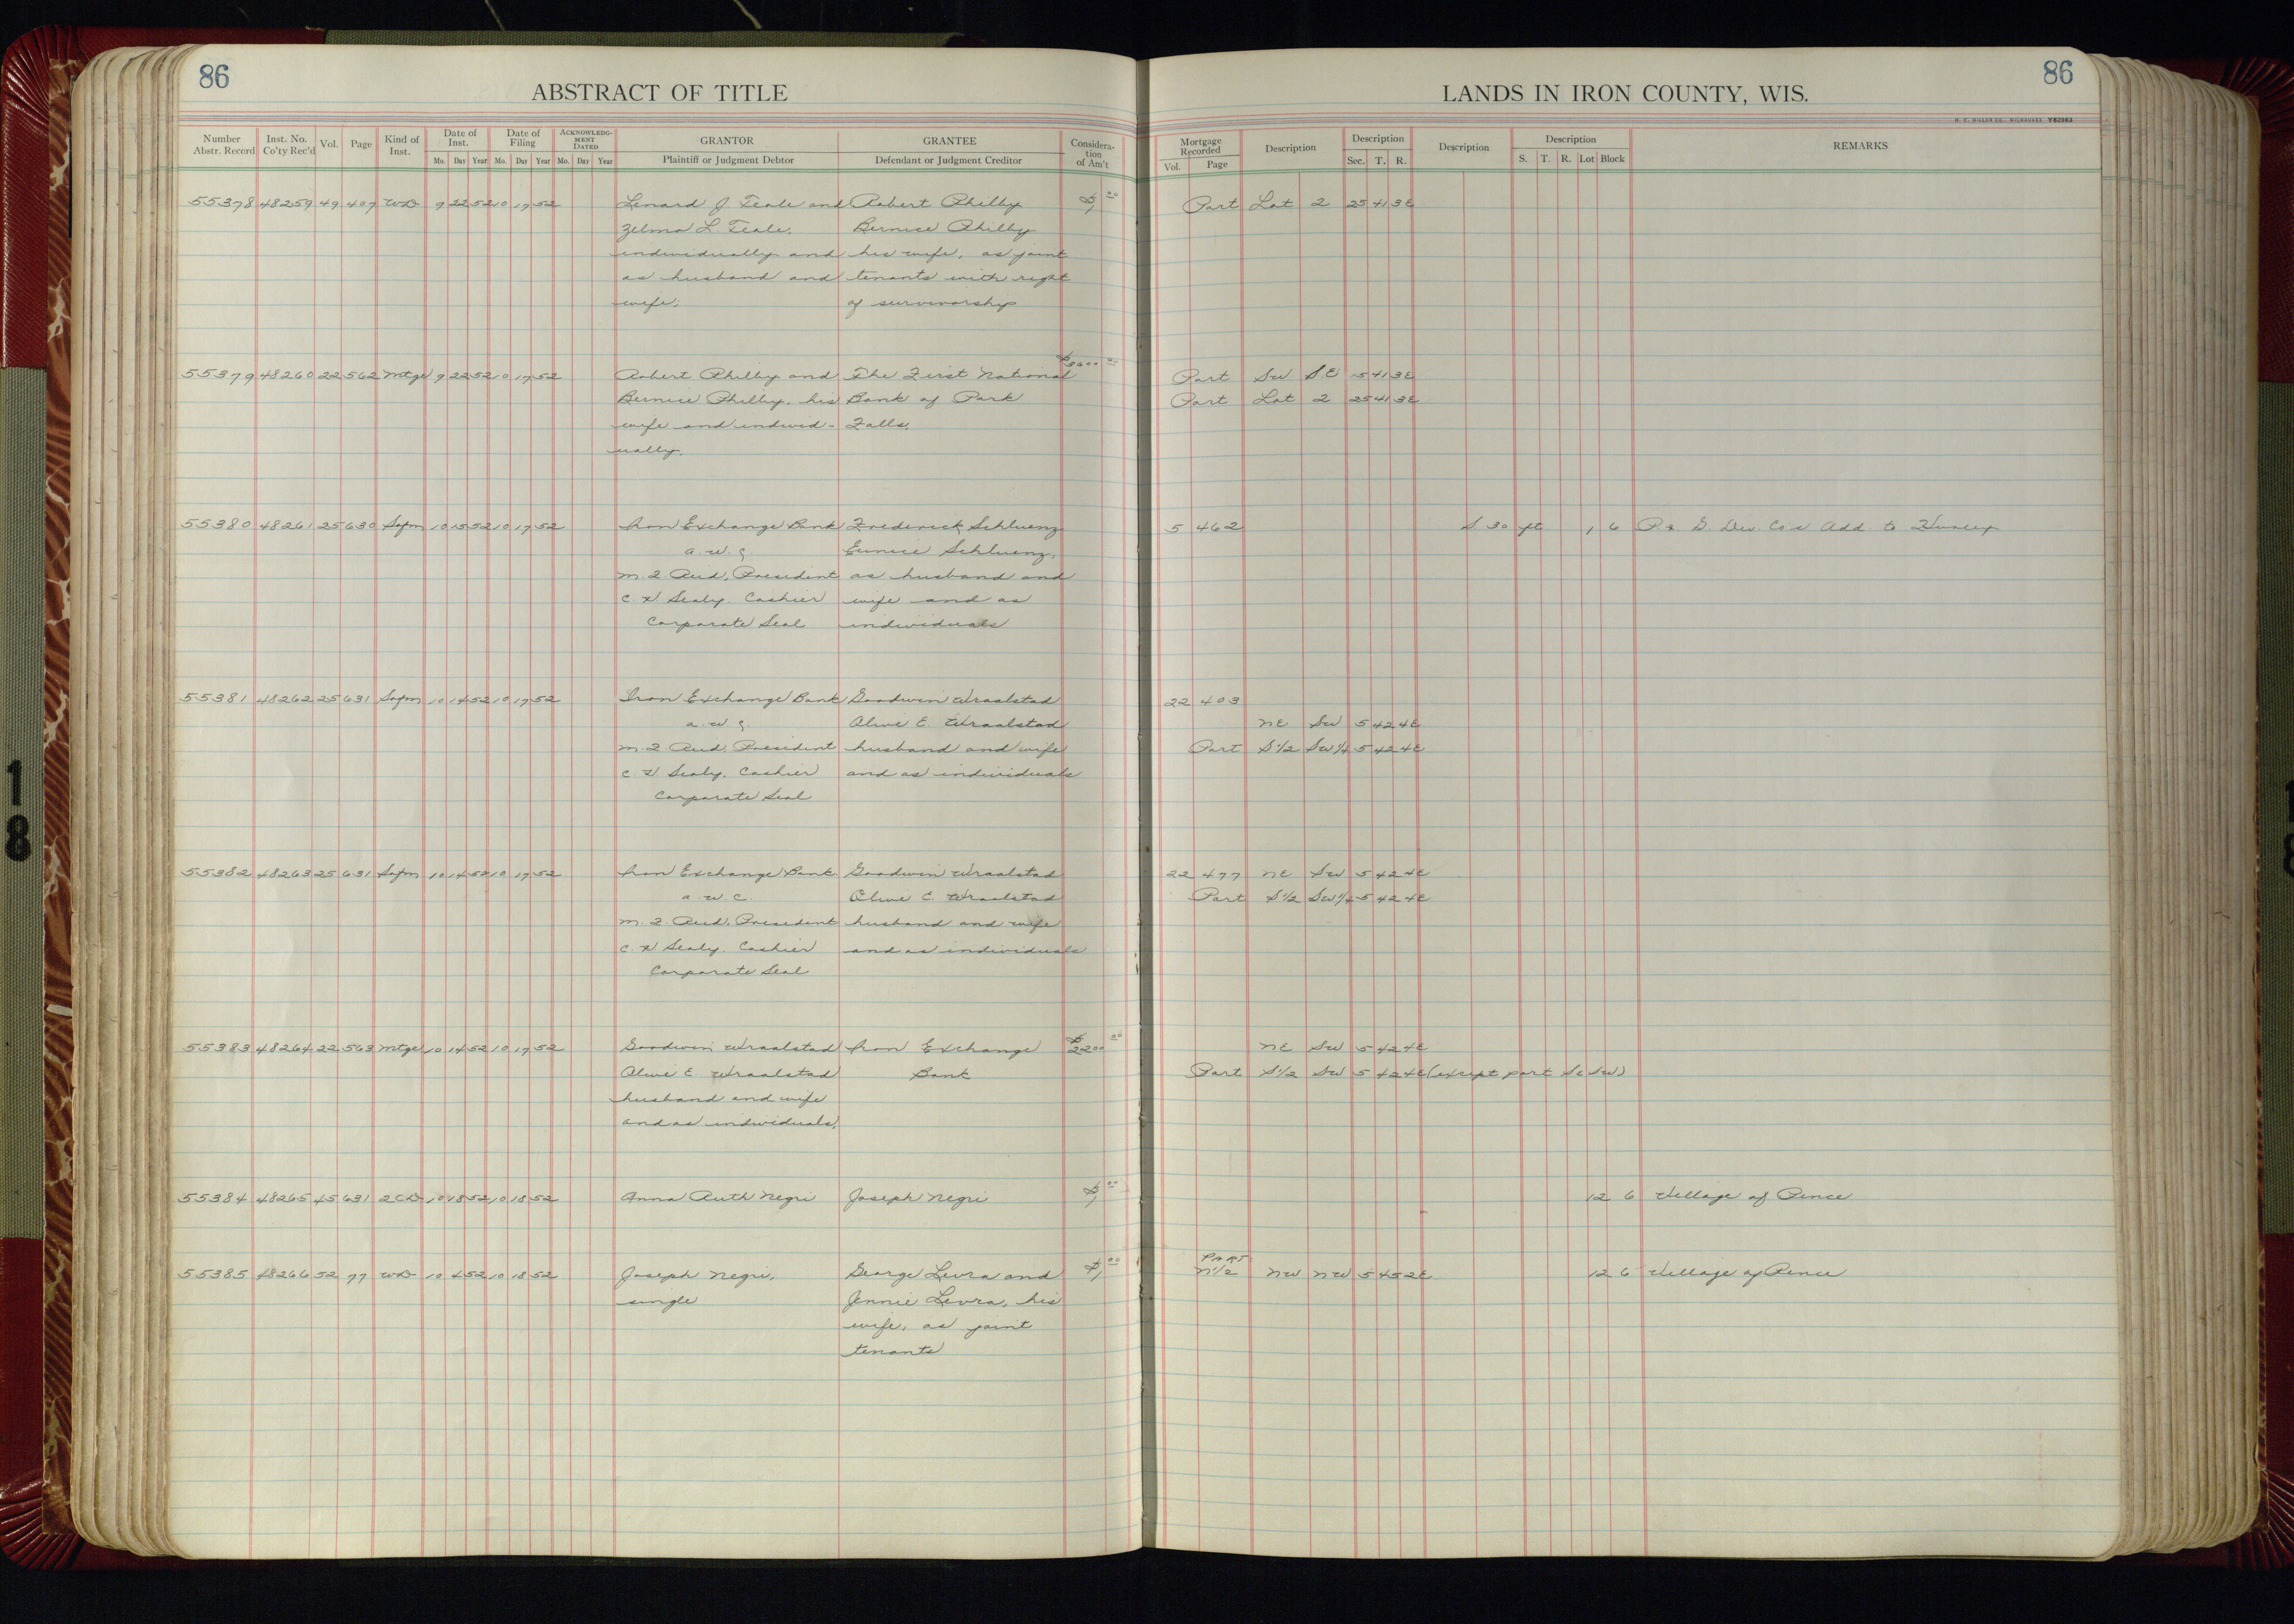 86
ABSTRACT OF TITLE
LANDS IN IRON COUNTY, WIS.
86
H. C. MILLER CO., MILWAUKEE Y62983
Number Abstr. Record | Inst. No. Co'ty Rec'd | Vol. | Page | Kind of Inst. | Date of Inst. Mo. Day Year | Date of Filing Mo. Day Year | ACKNOWLEDGMENT DATED Mo. Day Year | GRANTOR Plaintiff or Judgment Debtor | GRANTEE Defendant or Judgment Creditor | Consideration of Am't | Mortgage Recorded Vol. Page | Description | Description Sec. T. R. | Description | Description S. T. R. Lot Block | REMARKS
55378 48259 49 407 WD 9 22 52 10 17 52 Lenard J Teale and Robert Philby $1 00 Part Lot 2 25 41 3E
Zelma L Teale, Bernice Philby
individually and his wife, as joint
as husband and tenants with right
wife; of survivorship
55379 48260 22 562 Mtge 9 22 52 10 17 52 Robert Philby and The First National $3000 00 Part SW SE 5 41 3E
Bernice Philby, his Bank of Park Part Lot 2 25 41 3E
wife and individ- Falls.
ually.
55380 48261 25 630 Safm 10 15 52 10 17 52 Iron Exchange Bank Frederick Schluenz 5 462 S 30 ft 1 6 Add. to Hurley
Eunice Schluenz,
President as husband and
Sealy, Cashier wife and as
Corporate Seal individuals
55381 48262 25 631 Safm 10 14 52 10 17 52 Iron Exchange Bank Goodwin Wraalstad 22 403
Olive E. Wraalstad NE SW 5 42 4E
President husband and wife Part S1/2 SW1/4 5 42 4E
Sealy, Cashier and as individuals
Corporate Seal
55382 48263 25 631 Safm 10 14 52 10 17 52 Iron Exchange Bank Goodwin Wraalstad 22 477 NE SW 5 42 4E
Olive E. Wraalstad Part S1/2 SW1/4 5 42 4E
President husband and wife
Sealy, Cashier and as individuals
Corporate Seal
55383 48264 22 563 Mtge 10 14 52 10 17 52 Goodwin Wraalstad Iron Exchange $2200 00 NE SW 5 42 4E
Olive E. Wraalstad Bank Part S1/2 SW 5 42 4E (except part SE SW)
husband and wife
and as individuals.
55384 48265 45 631 2CD 10 18 52 10 18 52 Anna Ruth Negri Joseph Negri $1 00 12 6 Village of Pence
PART
55385 48266 52 77 WD 10 4 52 10 18 52 Joseph Negri, George Levra and $1 00 N1/2 NW NW 5 45 2E 12 6 Village of Pence
single Jennie Levra, his
wife, as joint
tenants